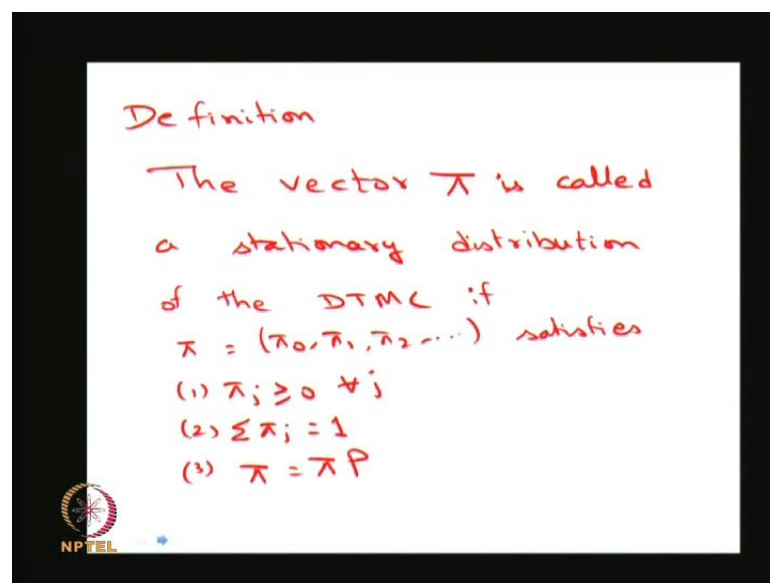 Definition
The vector π is called
a stationary distribution
of the DTMC if
π = (π₀, π₁, π₂ ...) satisfies
(1) πⱼ ≥ 0 ∀ j
(2) Σ πⱼ = 1
(3) π = π P
NPTEL